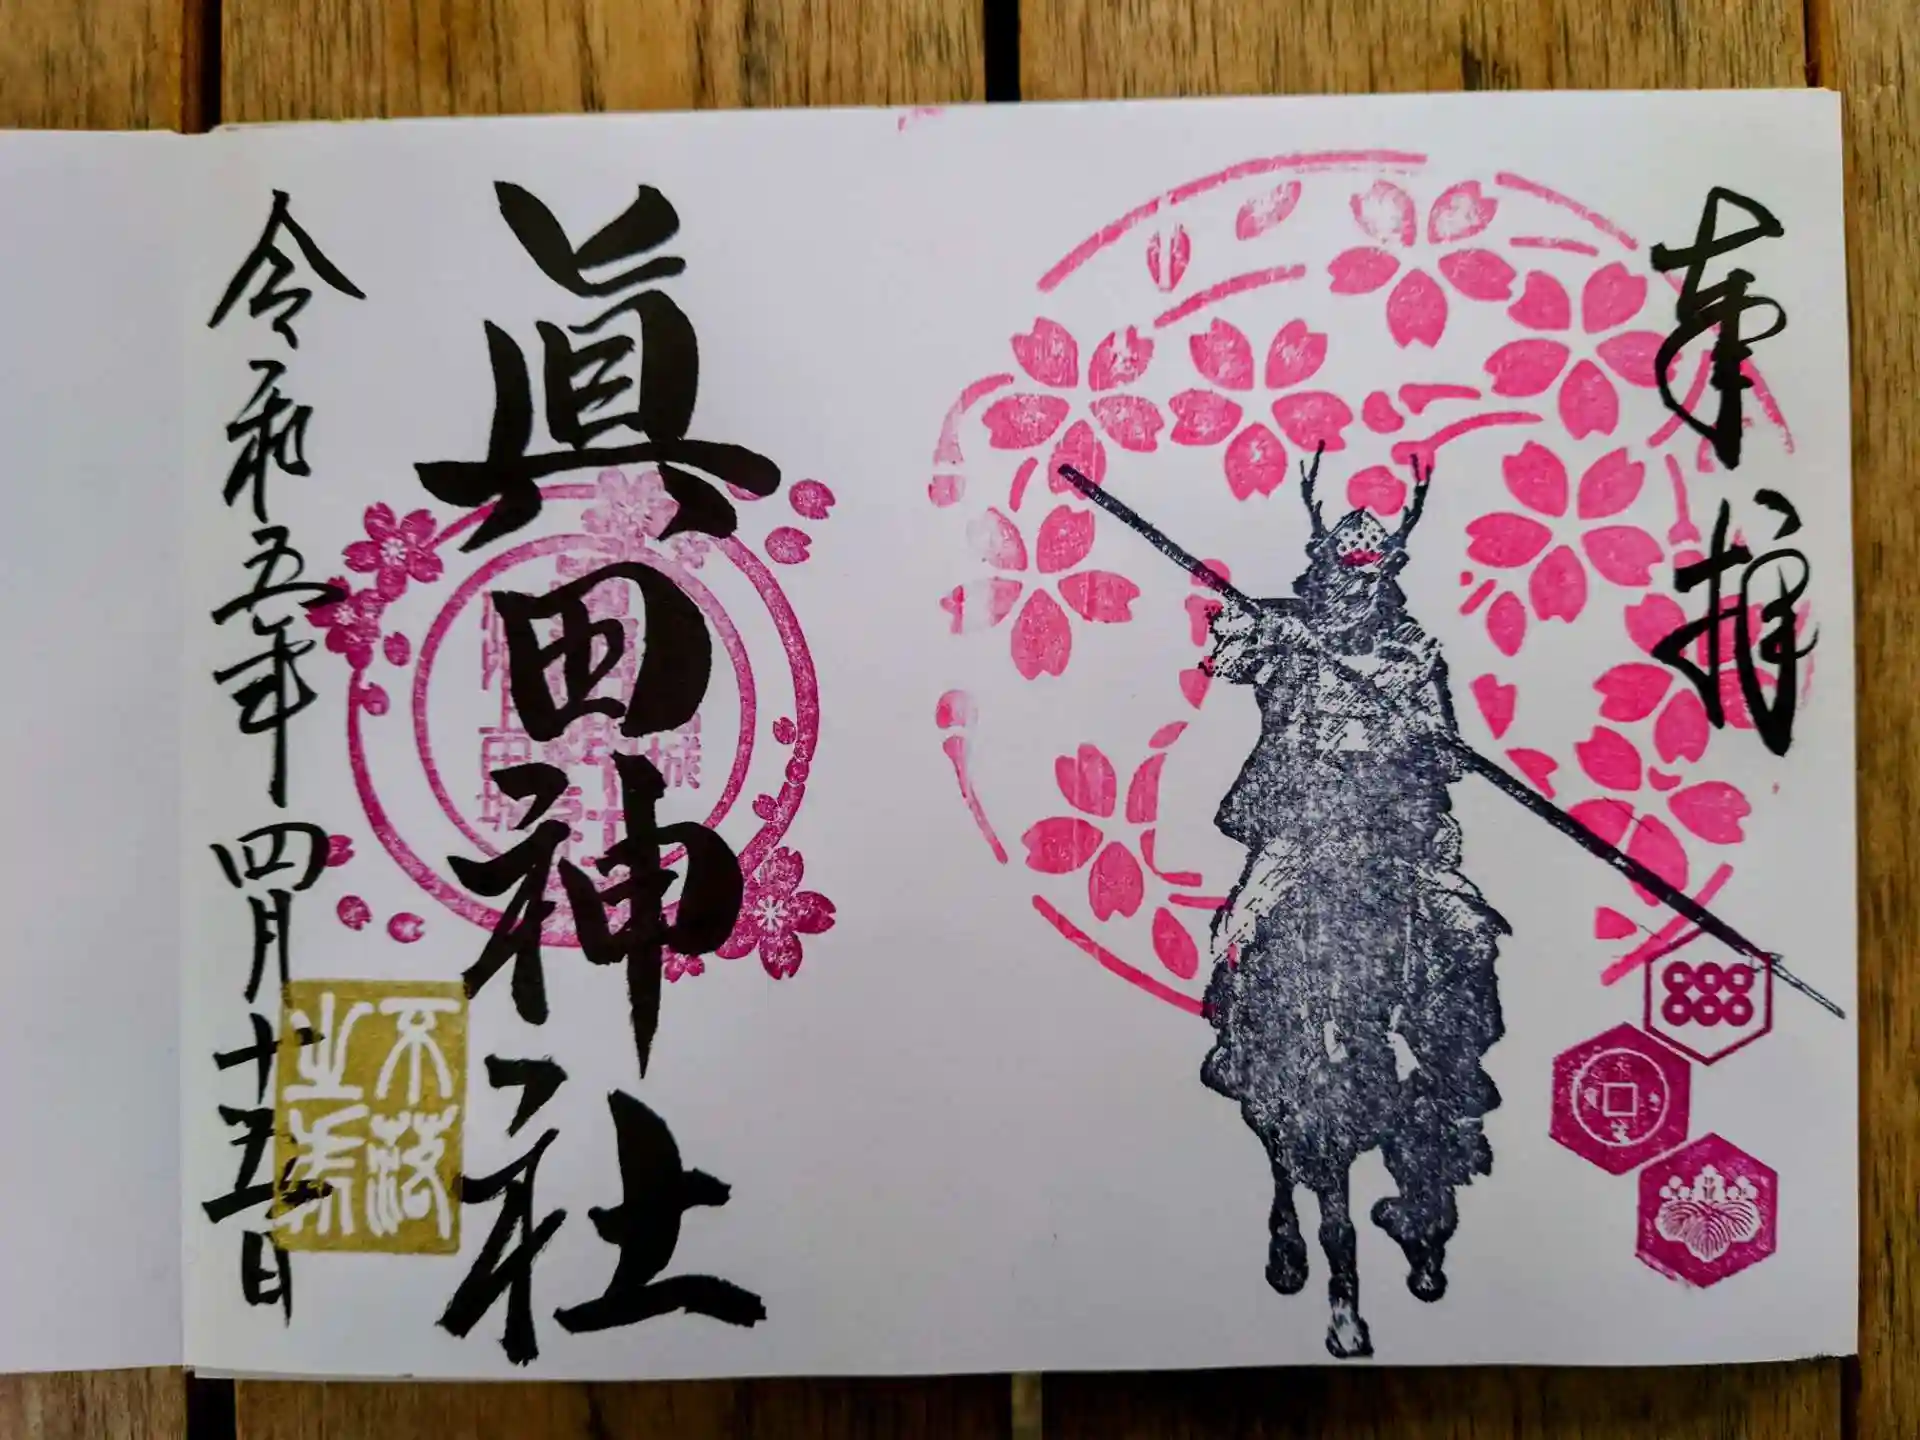 奉拝
眞田神社
令和五年四月十五日
不落
之
城